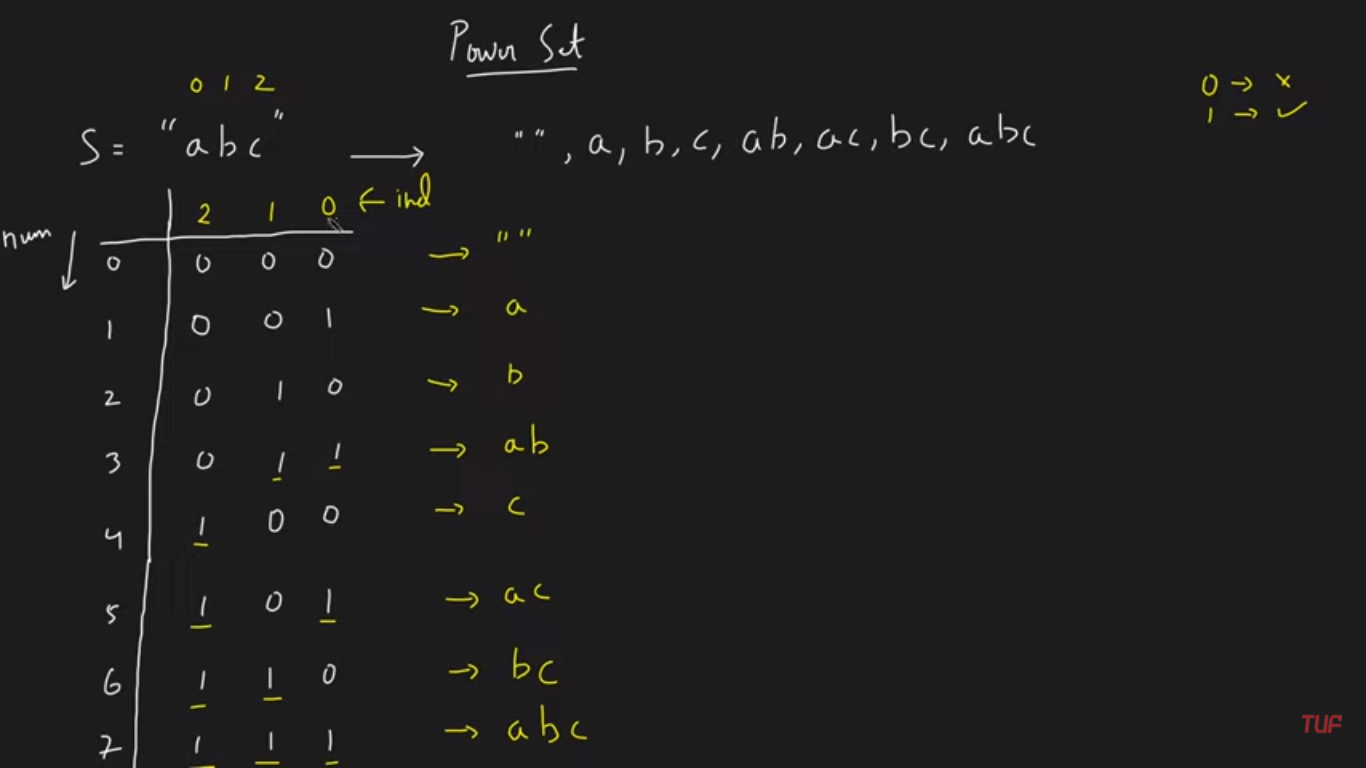 Power Set
0 1 2
0 → ×
1 → ✓
S = "abc" → "", a, b, c, ab, ac, bc, abc
2 1 0 ← ind
num ↓
0 0 0 0 → ""
1 0 0 1 → a
2 0 1 0 → b
3 0 1 1 → ab
4 1 0 0 → c
5 1 0 1 → ac
6 1 1 0 → bc
7 1 1 1 → abc
TUF